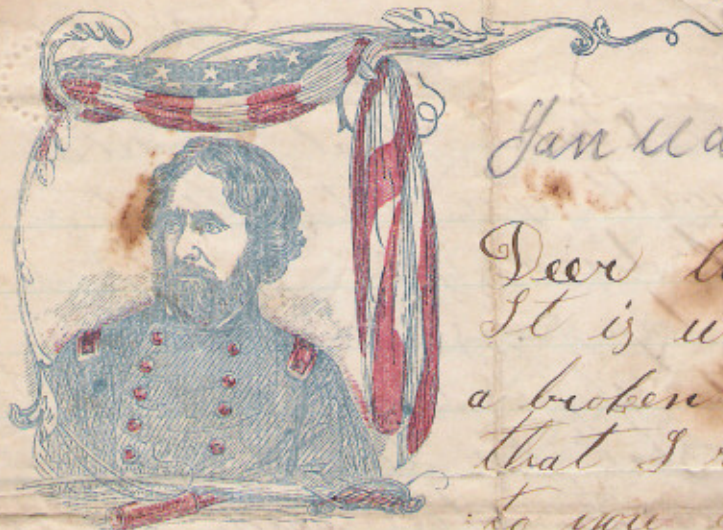 Janua
Deer b
It is w
a broken
that I
to you